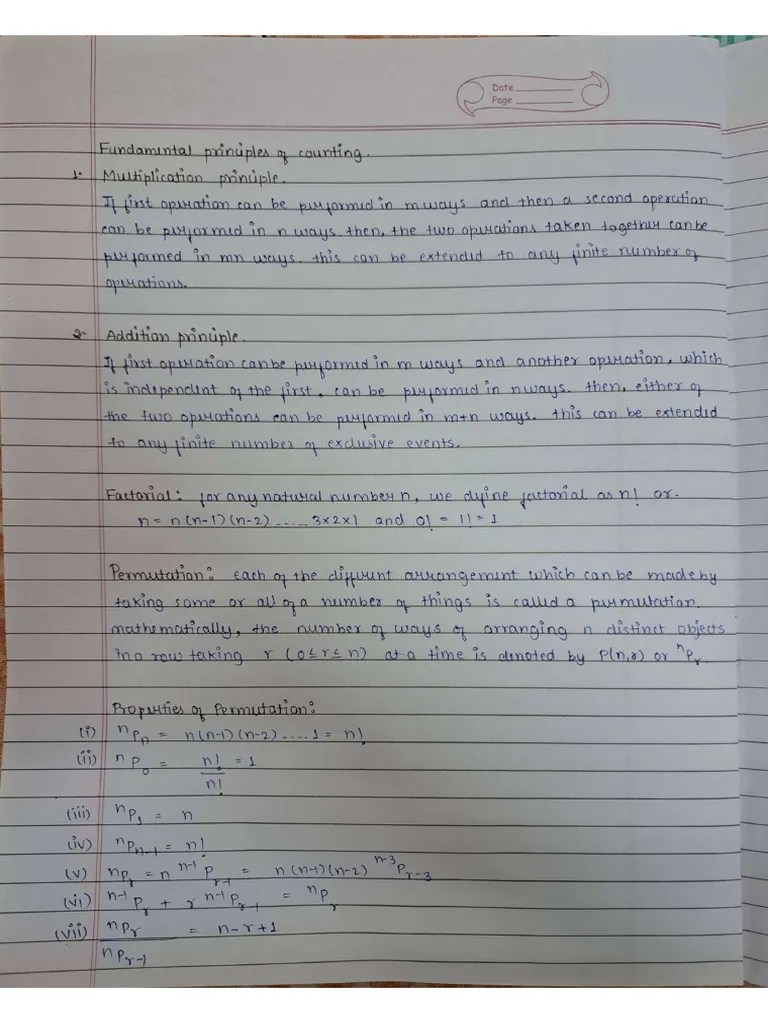 Date
Page
Fundamental principles of counting.
1. Multiplication principle.
If first operation can be performed in m ways and then a second operation
can be performed in n ways. then, the two operations taken together can be
performed in mn ways. this can be extended to any finite number of
operations.
2. Addition principle.
If first operation can be performed in m ways and another operation, which
is independent of the first, can be performed in n ways. then, either of
the two operations can be performed in m+n ways. this can be extended
to any finite number of exclusive events.
Factorial: for any natural number n, we define factorial as n! or
n = n(n-1)(n-2) ..... 3×2×1 and 0! = 1! = 1
Permutation: each of the different arrangement which can be made by
taking some or all of a number of things is called a permutation.
mathematically, the number of ways of arranging n distinct objects
in a row taking r (0≤r≤n) at a time is denoted by P(n,r) or ⁿPᵣ
Properties of Permutation:
(i) ⁿPₙ = n(n-1)(n-2) ..... 1 = n!
(ii) ⁿP₀ = n!/n! = 1
(iii) ⁿP₁ = n
(iv) ⁿPₙ₋₁ = n!
(v) ⁿPᵣ = n ⁿ⁻¹Pᵣ₋₁ = n(n-1)(n-2) ⁿ⁻³Pᵣ₋₃
(vi) ⁿ⁻¹Pᵣ + r ⁿ⁻¹Pᵣ₋₁ = ⁿPᵣ
(vii) ⁿPᵣ/ⁿPᵣ₋₁ = n-r+1